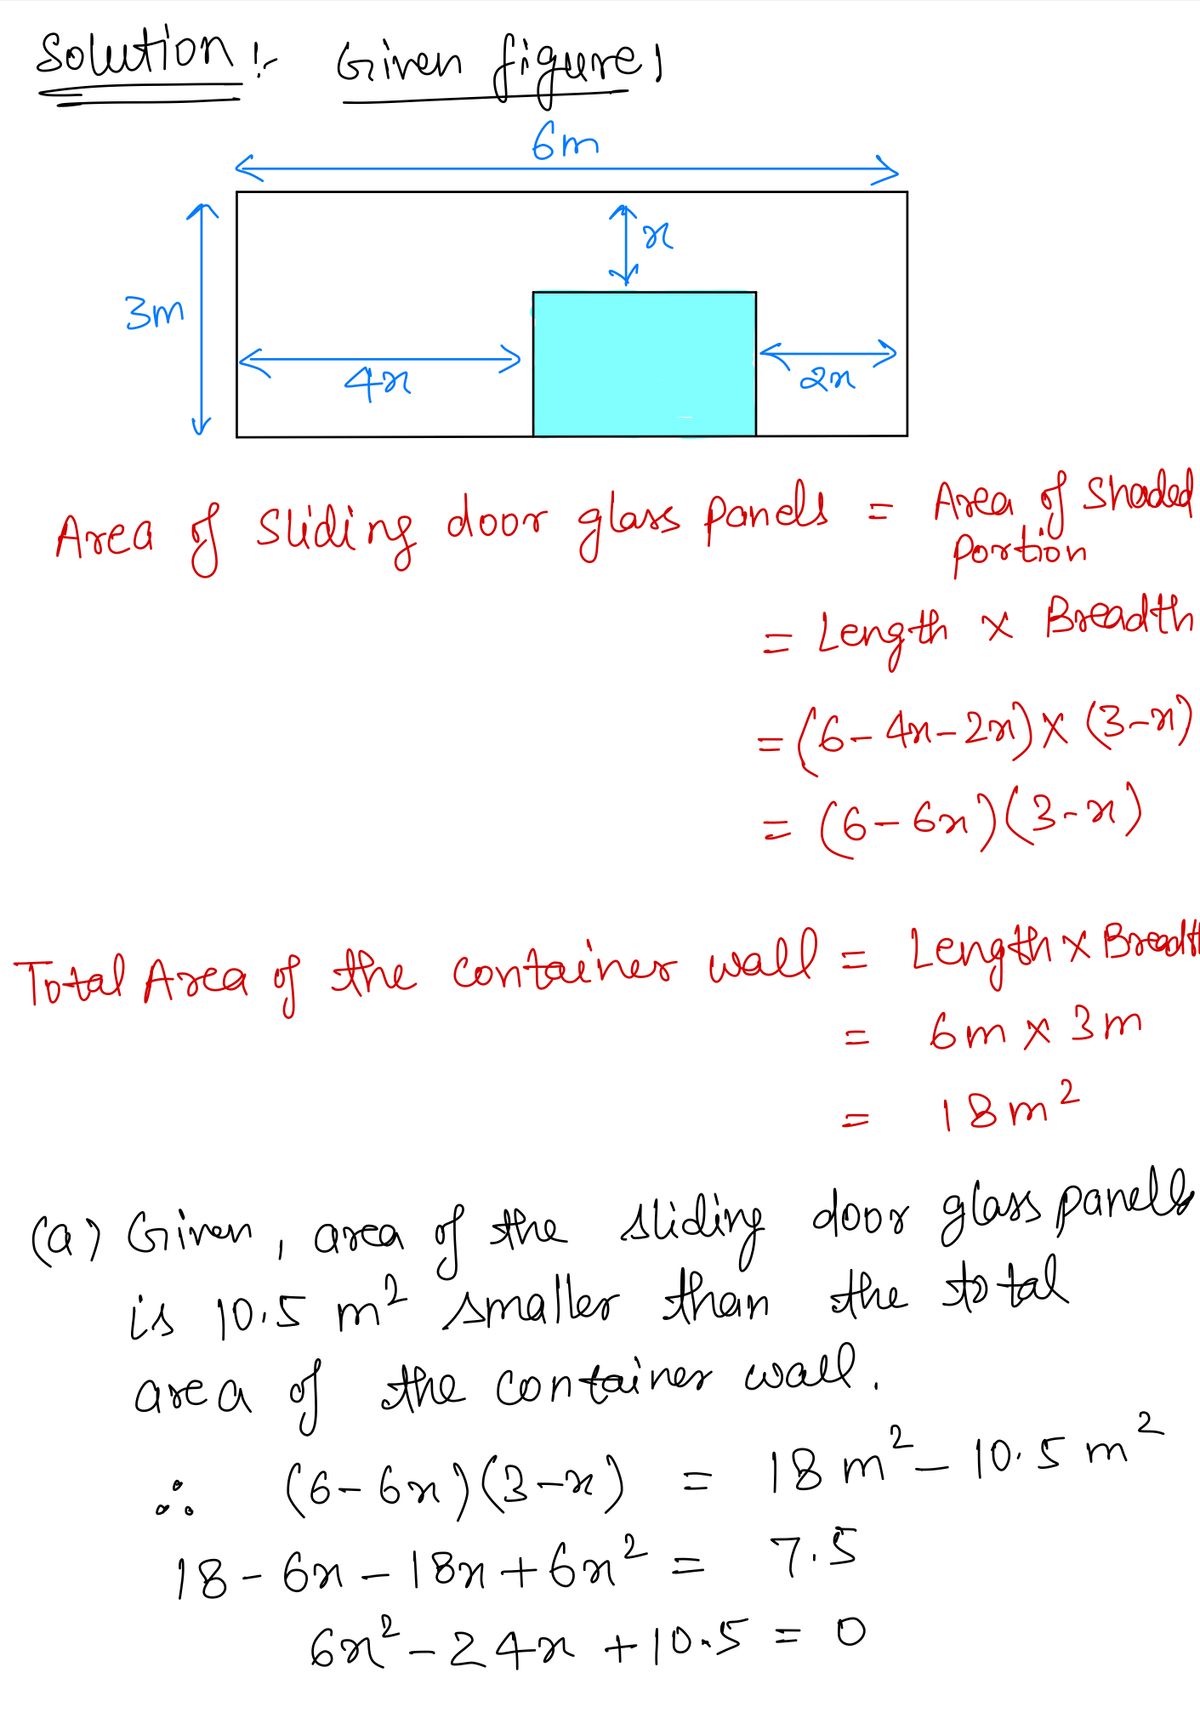 Solution :- Given figure,
6m
x
3m
4x
2x
Area of Sliding door glass panels = Area of Shaded
portion
= Length × Breadth
= (6 - 4x - 2x) × (3 - x)
= (6 - 6x)(3 - x)
Total Area of the container wall = Length × Breadt
= 6m × 3m
= 18m²
(a) Given, area of the sliding door glass panels
is 10.5 m² smaller than the total
area of the container wall.
∴ (6 - 6x)(3 - x) = 18 m² - 10.5 m²
18 - 6x - 18x + 6x² = 7.5
6x² - 24x + 10.5 = 0